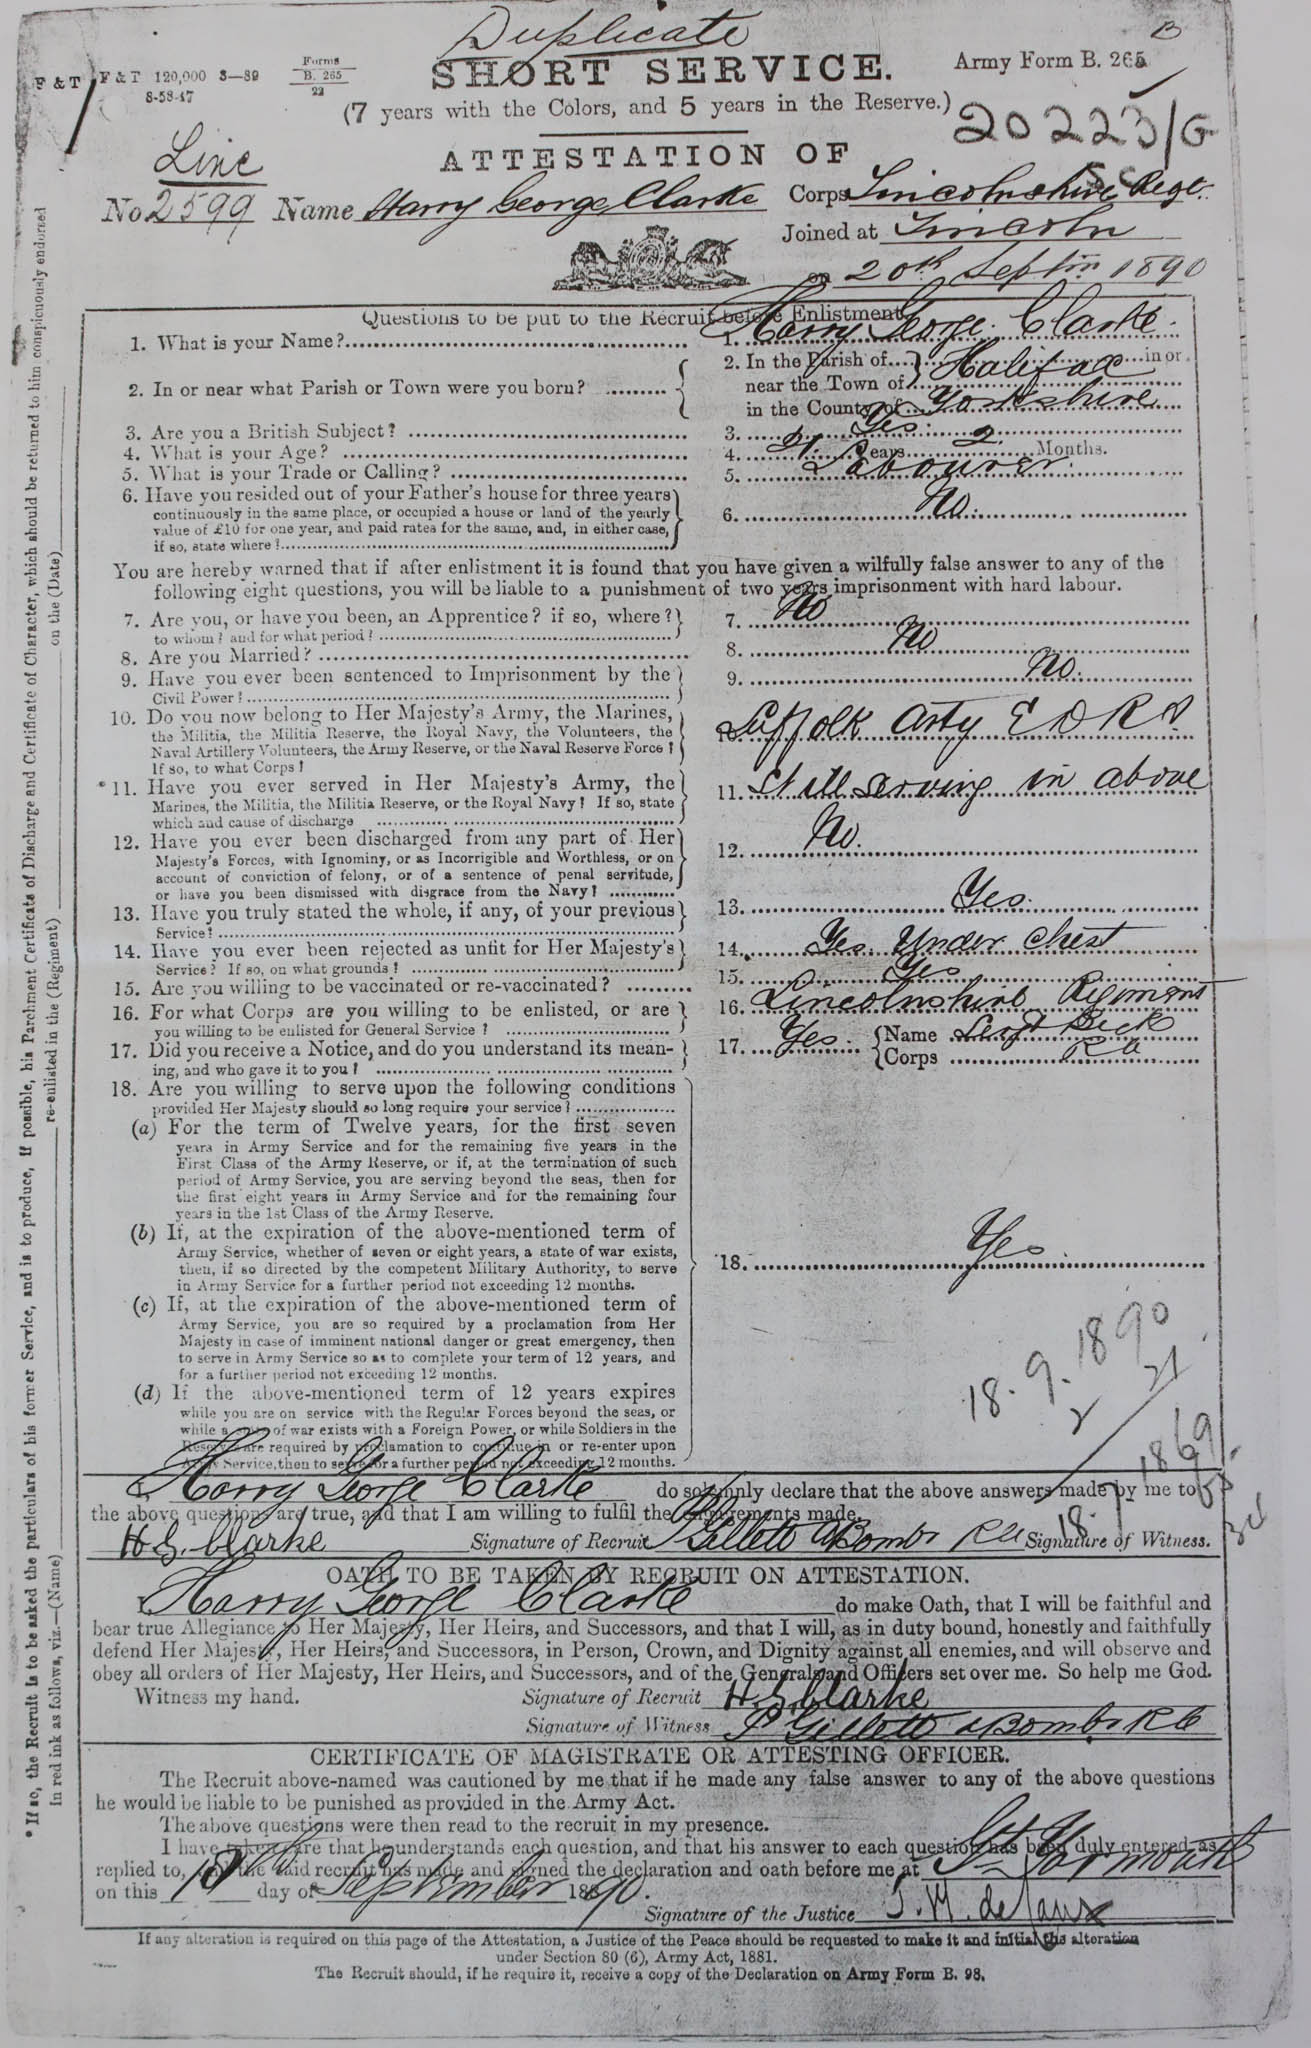 Duplicate
F & T F & T 120,000 3—89
8-58-17
Forms
B. 265
22
SHORT SERVICE.
Army Form B. 265
(7 years with the Colors, and 5 years in the Reserve.)
20223/G
ATTESTATION OF
Line
No. 2599 Name Harry George Clarke Corps Lincolnshire Regt.
Joined at Lincoln
on 20th Septr 1890
Questions to be put to the Recruit before Enlistment.
1. What is your Name? 1. Harry George Clarke
2. In or near what Parish or Town were you born? 2. In the Parish of in or
near the Town of Halifax
in the County of Yorkshire
3. Are you a British Subject? 3. Yes
4. What is your Age? 4. 21 Years 2 Months.
5. What is your Trade or Calling? 5. Labourer
6. Have you resided out of your Father's house for three years
continuously in the same place, or occupied a house or land of the yearly
value of £10 for one year, and paid rates for the same, and, in either case,
if so, state where? 6. No.
You are hereby warned that if after enlistment it is found that you have given a wilfully false answer to any of the
following eight questions, you will be liable to a punishment of two years imprisonment with hard labour.
7. Are you, or have you been, an Apprentice? if so, where?
to whom? and for what period? 7. No
8. Are you Married? 8. No
9. Have you ever been sentenced to Imprisonment by the
Civil Power? 9. No.
10. Do you now belong to Her Majesty's Army, the Marines,
the Militia, the Militia Reserve, the Royal Navy, the Volunteers, the
Naval Artillery Volunteers, the Army Reserve, or the Naval Reserve Force?
If so, to what Corps? 10. Suffolk Arty E D R A
* 11. Have you ever served in Her Majesty's Army, the
Marines, the Militia, the Militia Reserve, or the Royal Navy? If so, state
which and cause of discharge 11. Still serving in above
12. Have you ever been discharged from any part of Her
Majesty's Forces, with Ignominy, or as Incorrigible and Worthless, or on
account of conviction of felony, or of a sentence of penal servitude,
or have you been dismissed with disgrace from the Navy? 12. No.
13. Have you truly stated the whole, if any, of your previous
Service? 13. Yes.
14. Have you ever been rejected as unfit for Her Majesty's
Service? If so, on what grounds? 14. Yes. Under chest
15. Are you willing to be vaccinated or re-vaccinated? 15. Yes
16. For what Corps are you willing to be enlisted, or are
you willing to be enlisted for General Service? 16. Lincolnshire Regiment
17. Did you receive a Notice, and do you understand its mean-
ing, and who gave it to you? 17. Yes. Name Sergt Beck
Corps RA
18. Are you willing to serve upon the following conditions
provided Her Majesty should so long require your service?
(a) For the term of Twelve years, for the first seven
years in Army Service and for the remaining five years in the
First Class of the Army Reserve, or if, at the termination of such
period of Army Service, you are serving beyond the seas, then for
the first eight years in Army Service and for the remaining four
years in the 1st Class of the Army Reserve.
(b) If, at the expiration of the above-mentioned term of
Army Service, whether of seven or eight years, a state of war exists,
then, if so directed by the competent Military Authority, to serve
in Army Service for a further period not exceeding 12 months.
18. Yes.
(c) If, at the expiration of the above-mentioned term of
Army Service, you are so required by a proclamation from Her
Majesty in case of imminent national danger or great emergency, then
to serve in Army Service so as to complete your term of 12 years, and
for a further period not exceeding 12 months.
(d) If the above-mentioned term of 12 years expires
while you are on service with the Regular Forces beyond the seas, or
while a state of war exists with a Foreign Power, or while Soldiers in the
Reserve are required by proclamation to continue in or re-enter upon
Army Service, then to serve for a further period not exceeding 12 months.
18.9.1890
2 21
18 1869
I, Harry George Clarke do solemnly declare that the above answers made by me to
the above questions are true, and that I am willing to fulfil the engagements made.
H G Clarke Signature of Recruit P Gillett aBombr RA Signature of Witness.
OATH TO BE TAKEN BY RECRUIT ON ATTESTATION.
I, Harry George Clarke do make Oath, that I will be faithful and
bear true Allegiance to Her Majesty, Her Heirs, and Successors, and that I will, as in duty bound, honestly and faithfully
defend Her Majesty, Her Heirs, and Successors, in Person, Crown, and Dignity against all enemies, and will observe and
obey all orders of Her Majesty, Her Heirs, and Successors, and of the Generals and Officers set over me. So help me God.
Witness my hand. Signature of Recruit H. G. Clarke
Signature of Witness P Gillett aBombr RA
CERTIFICATE OF MAGISTRATE OR ATTESTING OFFICER.
The Recruit above-named was cautioned by me that if he made any false answer to any of the above questions
he would be liable to be punished as provided in the Army Act.
The above questions were then read to the recruit in my presence.
I have taken care that he understands each question, and that his answer to each question has been duly entered as
replied to, and the said recruit has made and signed the declaration and oath before me at Gt Yarmouth
on this 18 day of September 1890.
Signature of the Justice
If any alteration is required on this page of the Attestation, a Justice of the Peace should be requested to make it and initial the alteration
under Section 80 (6), Army Act, 1881.
The Recruit should, if he require it, receive a copy of the Declaration on Army Form B. 98.
* If so, the Recruit is to be asked the particulars of his former Service, and is to produce, if possible, his Parchment Certificate of Discharge and Certificate of Character, which should be returned to him conspicuously endorsed
in red ink as follows, viz.—(Name) re-enlisted in the (Regiment) on the (Date)